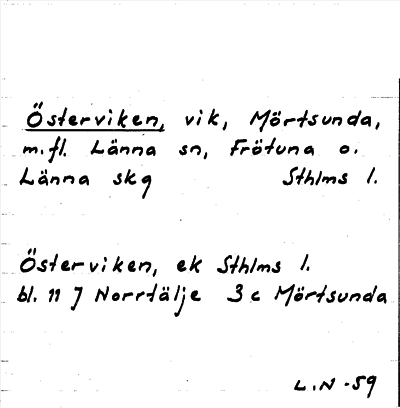 Österviken, vik, Mörtsunda,
m.fl. Länna sn, Frötuna o.
Länna skg Sthlms l.
Österviken, ek Sthlms l.
bl. 11 J Norrtälje 3 c Mörtsunda
L.N -59